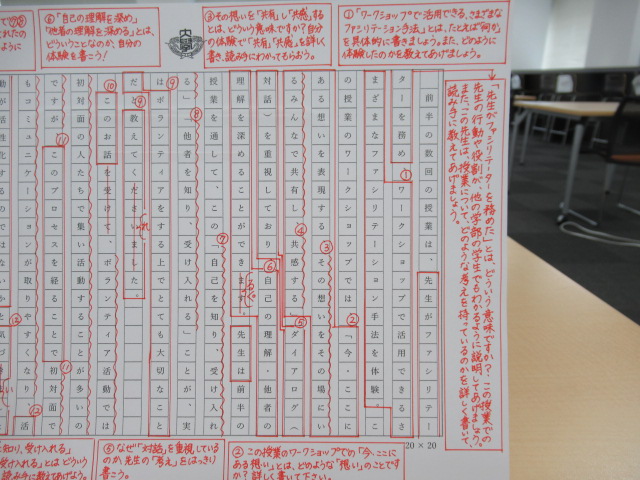 ①「ワークショップで活用できる、さまざまな
ファシリテーション手法」とは、たとえば「何か」
を具体的に書きましょう。また、どのように
体験したのかを教えてあげましょう。
③その想いを「共有」し「共感」する
とは、どういう意味ですか?自分
の体験で「共有」「共感」を詳しく
書き、読み手にわかってもらおう。
⑥「自己の理解を深め」
「他者の理解を深める」とは、
どういうことなのか、自分の
体験を書こう!
「先生がファシリテータを務めた」とは、どういう意味ですか?この授業での
先生の行動や役割が、他の学部の学生でもわかるように説明してあげましょう。
また、この先生は、授業について、どのような考えを持っているのかを詳しく書いて、
読み手に教えてあげましょう。
前半の数回の授業は、先生がファシリテー
ターを務め、ワークショップで活用できるさ
まざまなファシリテーション手法を体験。こ
の授業のワークショップでは「今、ここに
ある想いを表現する」その想いをその場にい
るみんなで共有し、共感する」ダイアログ(
対話)を重視しており、自己の理解・他者の
理解を深めることができます。先生は前半の
授業を通して、「自己を知り、受け入れ
る」「他者を知り、受け入れる」ことが、実
はボランティアをする上でとても大切なこと
だと教えてくださいました。
このお話を受け、ボランティア活動では
初対面の人たちで集い活動することが多いの
ですが、このプロセスを経ることで初対面で
もコミュニケーションが取りやすくなり、活
動が活性化するのではないか
20×20
②この授業のワークショップでの「今、ここに
ある想い」とは、どのような「想い」のことです
か?詳しく書いて下さい。
⑤なぜ「対話」を重視している
のか、先生の「考え」をはっきり
書こう。
知り、受け入れる」
受け入れる」とは どういう
読み手に教えてあげよう。